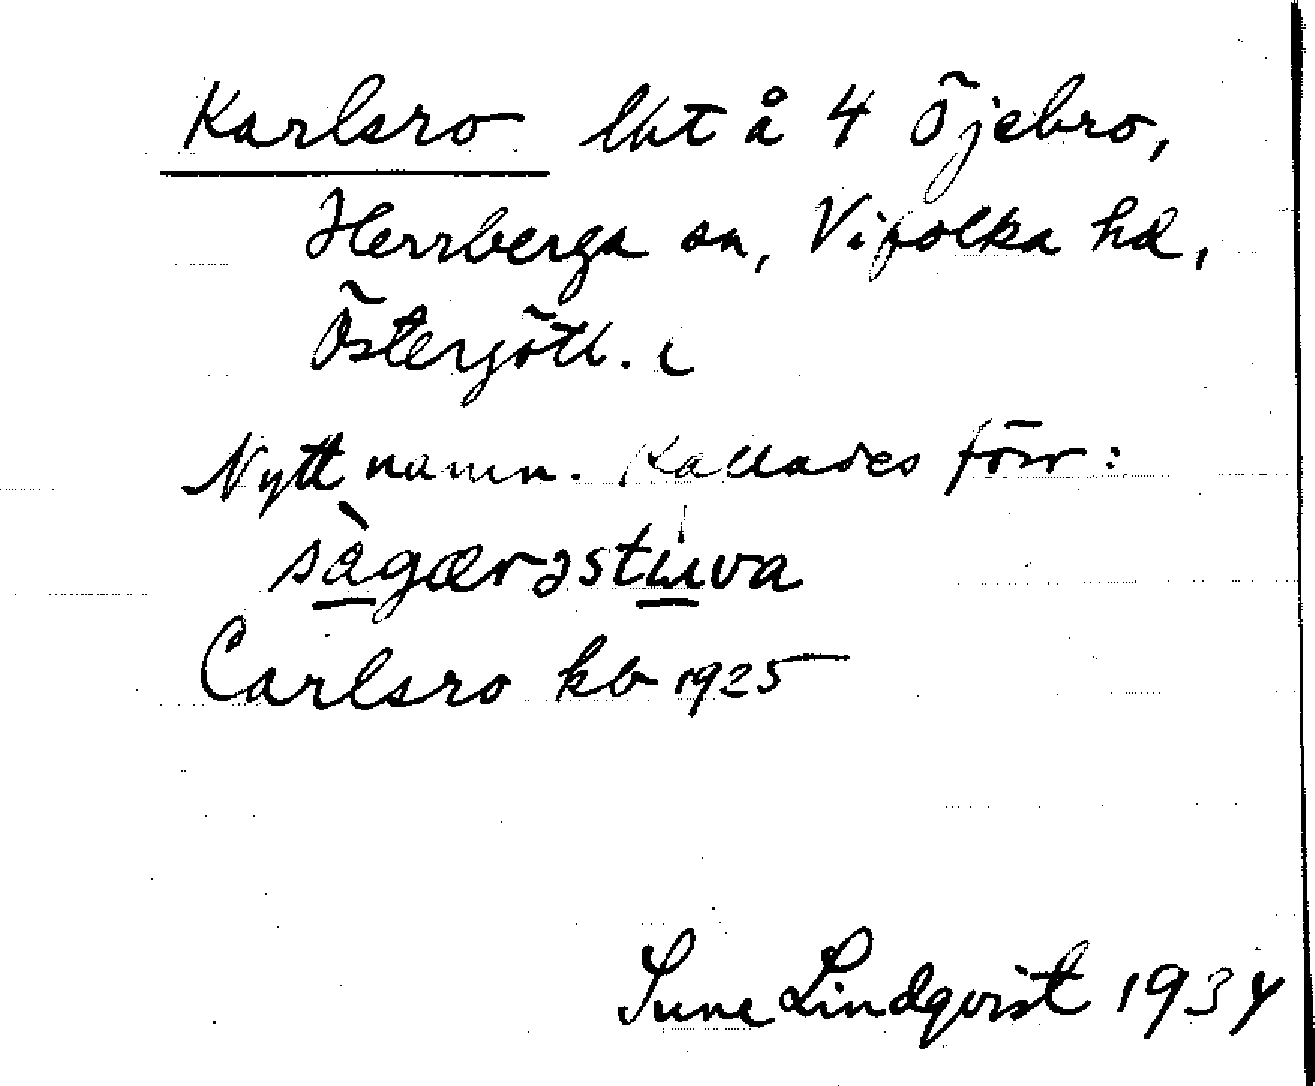 Karlsro lht å 4 Öjebro,
Herrberga sn, Vifolka hd,
Östergötl.
Nytt namn. Kallades förr:
sàgærəstuva
Carlsro kb 1925
Sune Lindqvist 1934